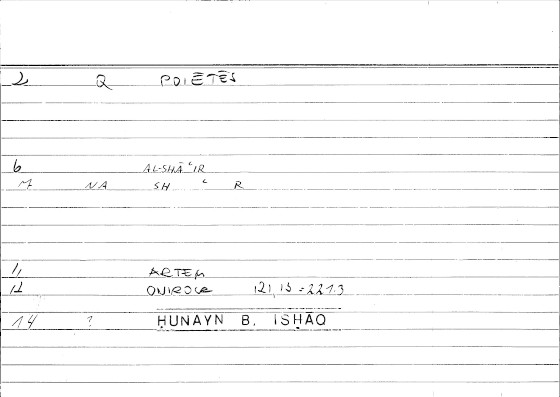 2 Q POIĒTĒS
6 AL-SHĀʿIR
M NA SH ʿ R
11 ARTEM
12 ONIROCR 121,15 = 221.3
14 ? ḤUNAYN B. ISḤĀQ